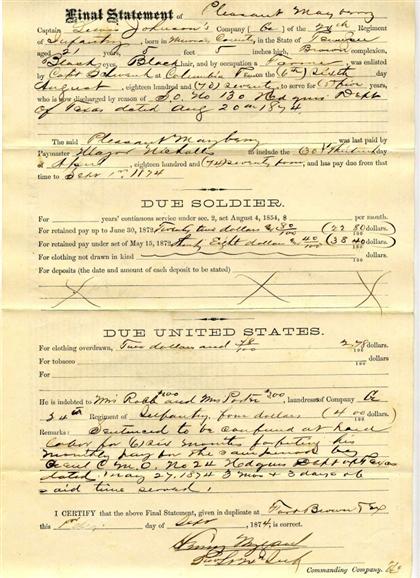 Final Statement of Pleasant Mayberry
Captain Lewis Johnson's Company (G) of the 24th Regiment
of Infantry, born in County in the State of
aged 21 years, 5 feet 5 inches high, Brown complexion,
Black eyes, Black hair, and by occupation a, was enlisted
by Capt at Columbia on the (6th) Sixth day
August, eighteen hundred and (70) seventy, to serve for years,
who is now discharged by reason of S.O. No 130 Hdqrs Dept
of Texas dated Aug 20th 1874
The said Pleasant Mayberry was last paid by
Paymaster Major Nicholls to include the (30) Thirtieth day
April, eighteen hundred and (74) seventy four, and has pay due from that
time to Sept 1st 1874
DUE SOLDIER.
For years' continuous service under sec. 2, act August 4, 1854, $ per month.
For retained pay up to June 30, 1872, Twenty two dollars & 80/100 (22 80/100 dollars.)
For retained pay under act of May 15, 1872, Thirty Eight dollars & 40/100 (38 40/100 dollars.)
For clothing not drawn in kind dollars.
For deposits (the date and amount of each deposit to be stated)
DUE UNITED STATES.
For clothing overdrawn, Two dollars and 78/100 2 78/100 dollars.
For tobacco dollars.
He is indebted to Mrs Robb $2.00 and Mrs Porter $2.00, laundress of Company G
24th Regiment of Infantry, four dollars (4 00/100 dollars.)
Remarks: Sentenced to be confined at hard
labor for (6) six months forfeiting his
monthly pay for the same period by
Genl C.M.O. No 24 Hdqrs Dept of Texas
dated May 27, 1874 3 mos & 3 days of
said time served.
I CERTIFY that the above Final Statement, given in duplicate at Fort Brown Tex
this 1st day of Sept, 1874, is correct.
Commanding Company.